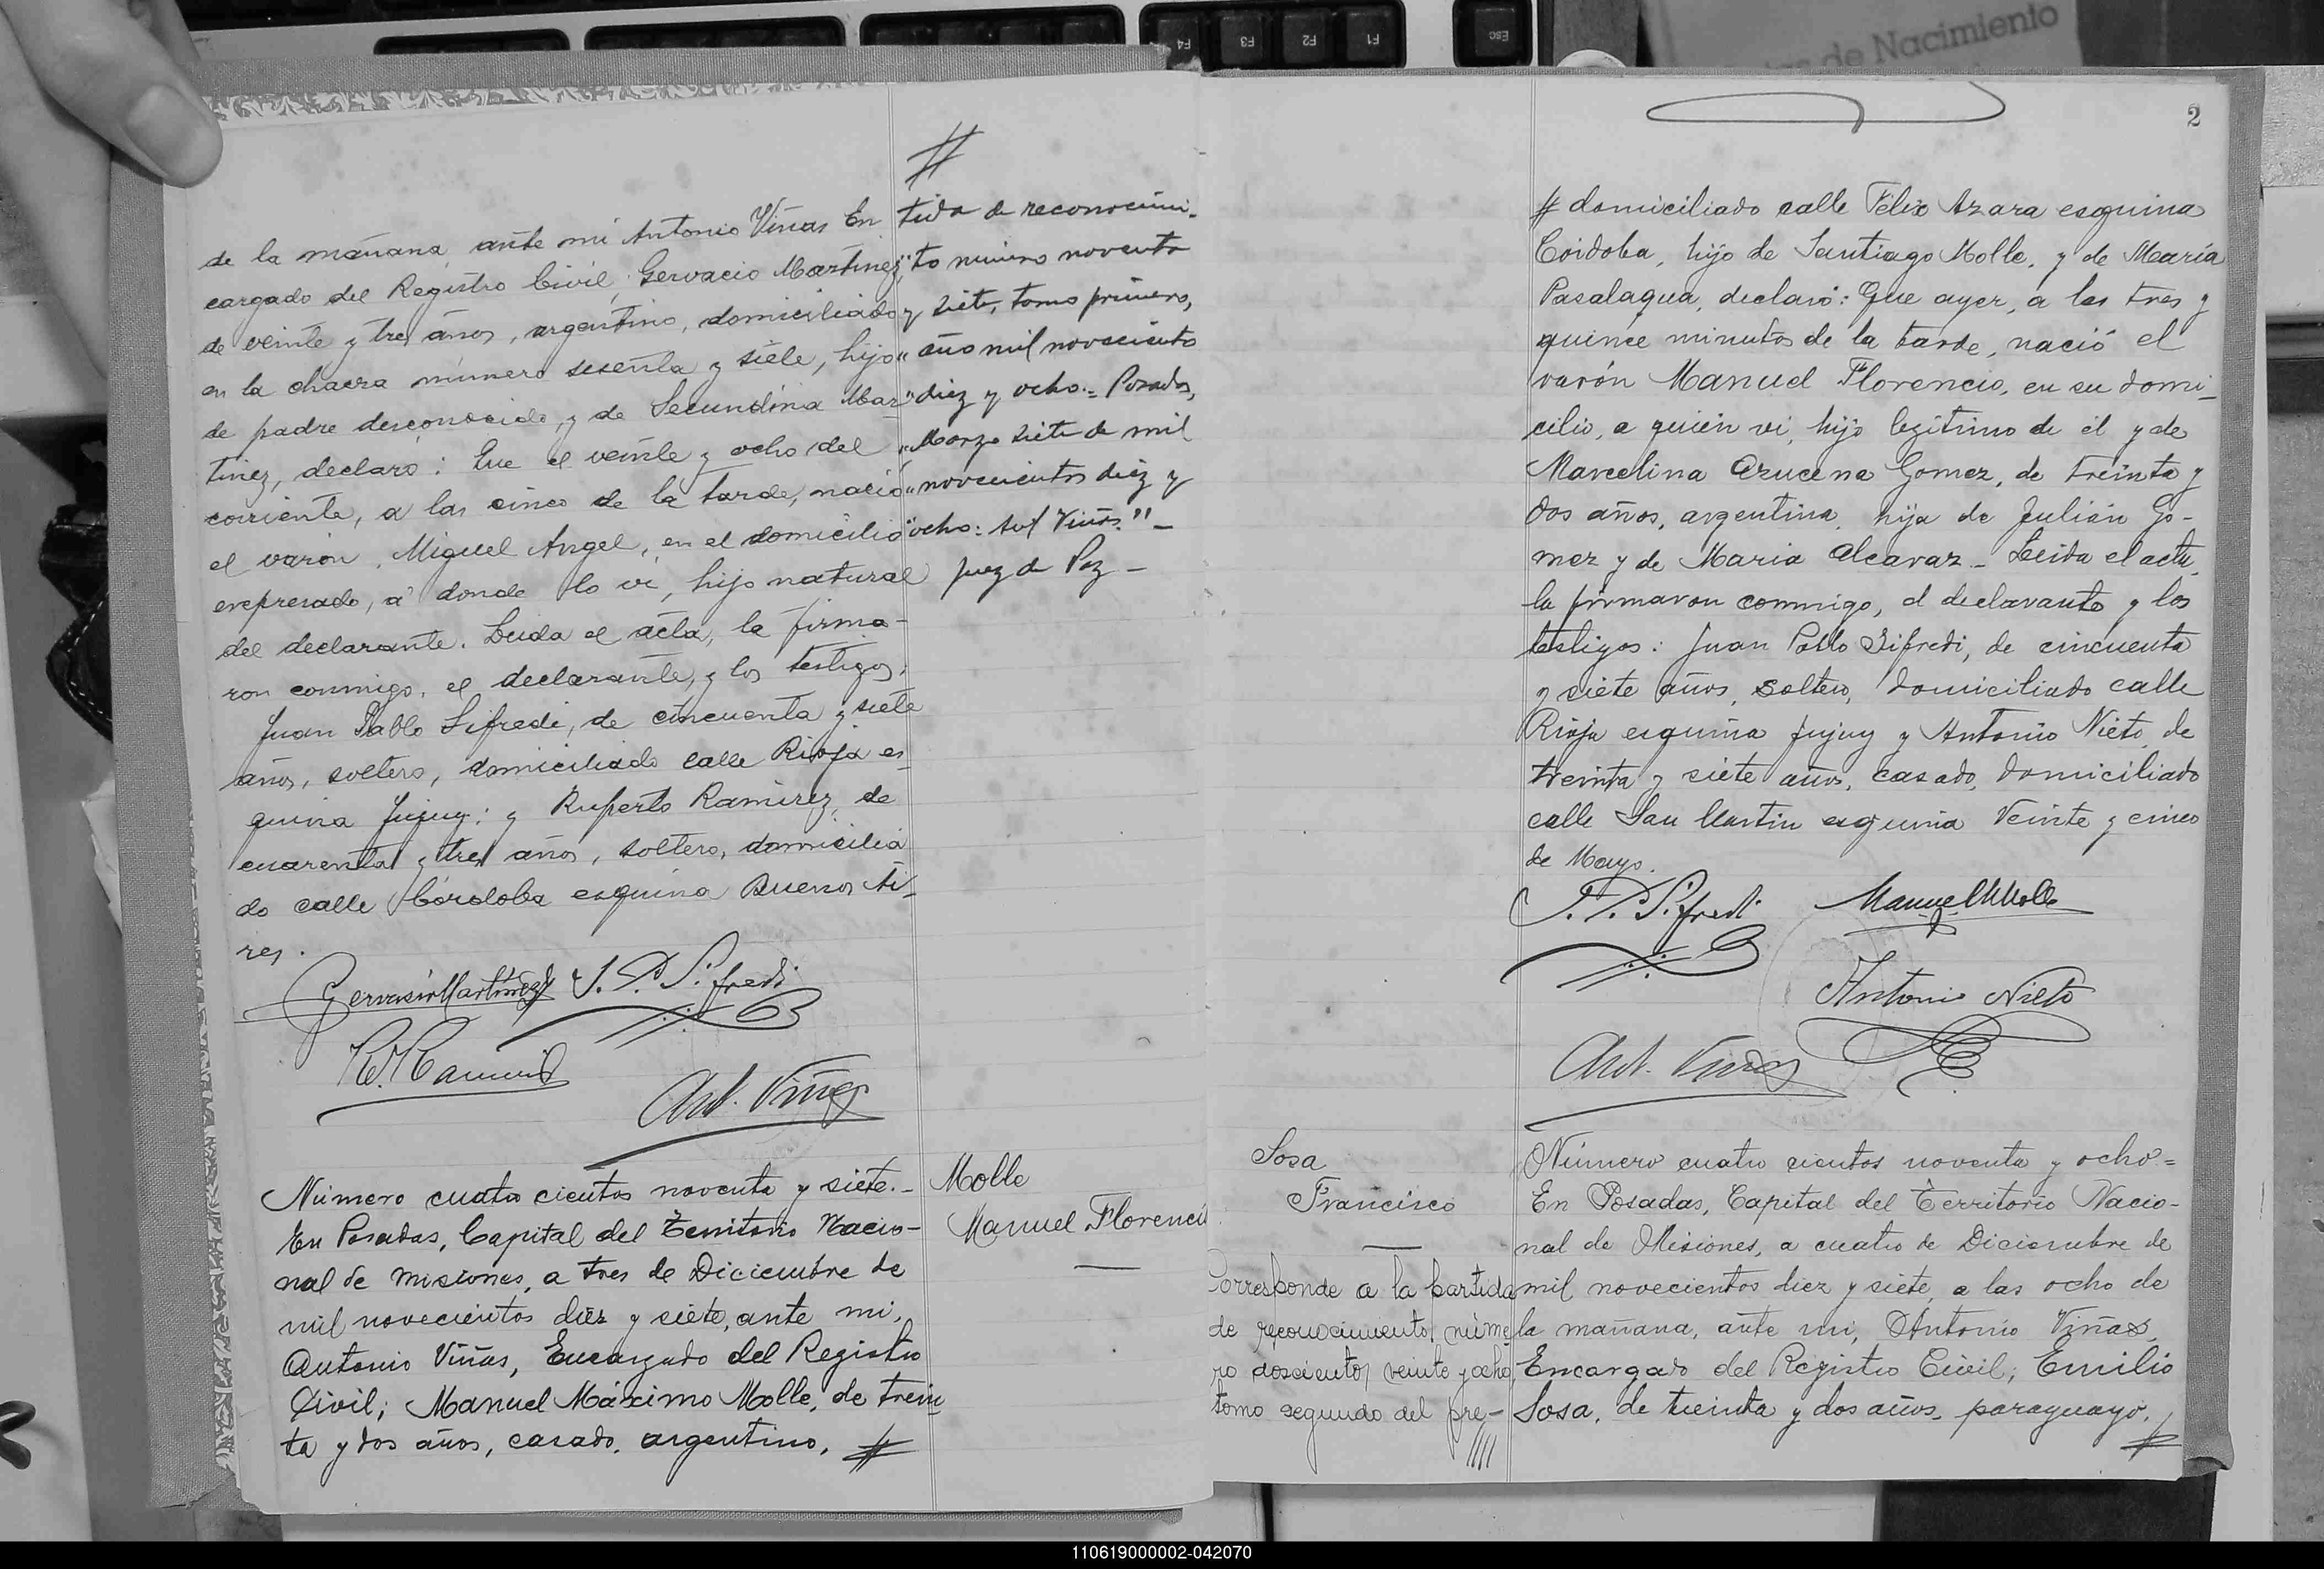 de Nacimiento
Esc
F1
F2
F3
F4
#
de la mañana, ante mi Antonio Viñas En
cargado del Registro Civil, Gervacio Martinez,
de veinte y tres años, argentino, domiciliado
en la chacra número sesenta y siete, hijo
de padre desconocido, y de Secundina Mar
tinez, declaró: Que el veinte y ocho del
corriente, a las cinco de la tarde, nació
el varón, Miguel Angel, en el domicilio
expresado, a donde lo vi, hijo natural
del declarante. Leida el acta, la firma-
ron conmigo, el declarante, y los testigos,
Juan Pablo Sifredi, de cincuenta y siete
años, soltero, domiciliado calle Rioja es
quina Jujuy; y Ruperto Ramirez, de
cuarenta y tres años, soltero, domicilia
do calle Córdoba esquina Buenos Ai-
res.
Gervasio Martinez J. P. Sifredi
R. Ramirez
Ant. Viñas
tida de reconocimi-
"to número noventa
y siete, tomo primero,
" año mil novecientos
"diez y ocho.= Posadas,
"Marzo siete de mil
"novecientos diez y
"ocho: Ant Viñas" -
juez de Paz -
Número cuatro cientos noventa y siete.-
En Posadas, Capital del Territorio Nacio-
nal de Misiones, a tres de Diciembre de
mil novecientos diez y siete, ante mi,
Antonio Viñas, Encargado del Registro
Civil; Manuel Máximo Molle, de trein-
ta y dos años, casado, argentino, #
Molle
Manuel Florencio
2
# domiciliado calle Félix Azara esquina
Córdoba, hijo de Santiago Molle, y de María
Pasalagua, declaró: Que ayer, a las tres y
quince minutos de la tarde, nació el
varón Manuel Florencio, en su domi-
cilio, a quien vi, hijo legítimo de él y de
Marcelina Azucena Gomez, de treinta y
dos años, argentina, hija de Julián Go-
mez y de Maria Alcaraz - Leida el acta,
la firmaron conmigo, el declarante y los
testigos: Juan Pablo Sifredi, de cincuenta
y siete años, soltero, domiciliado calle
Rioja esquina Jujuy y Antonio Nieto, de
treinta y siete años, casado, domiciliado
calle San Martin esquina Veinte y cinco
de Mayo.
J. P. Sifredi Manuel M Molle
Antonio Nieto
Ant. Viñas
Sosa
Francisco
Corresponde a la partida
de reconocimiento núme
ro doscientos veinte y ocho
tomo segundo del pre-
Número cuatro cientos noventa y ocho=
En Posadas, Capital del Territorio Nacio-
nal de Misiones, a cuatro de Diciembre de
mil novecientos diez y siete, a las ocho de
la mañana, ante mi, Antonio Viñas,
Encargado del Registro Civil; Emilio
Sosa, de treinta y dos años, paraguayo,
#
110619000002-042070